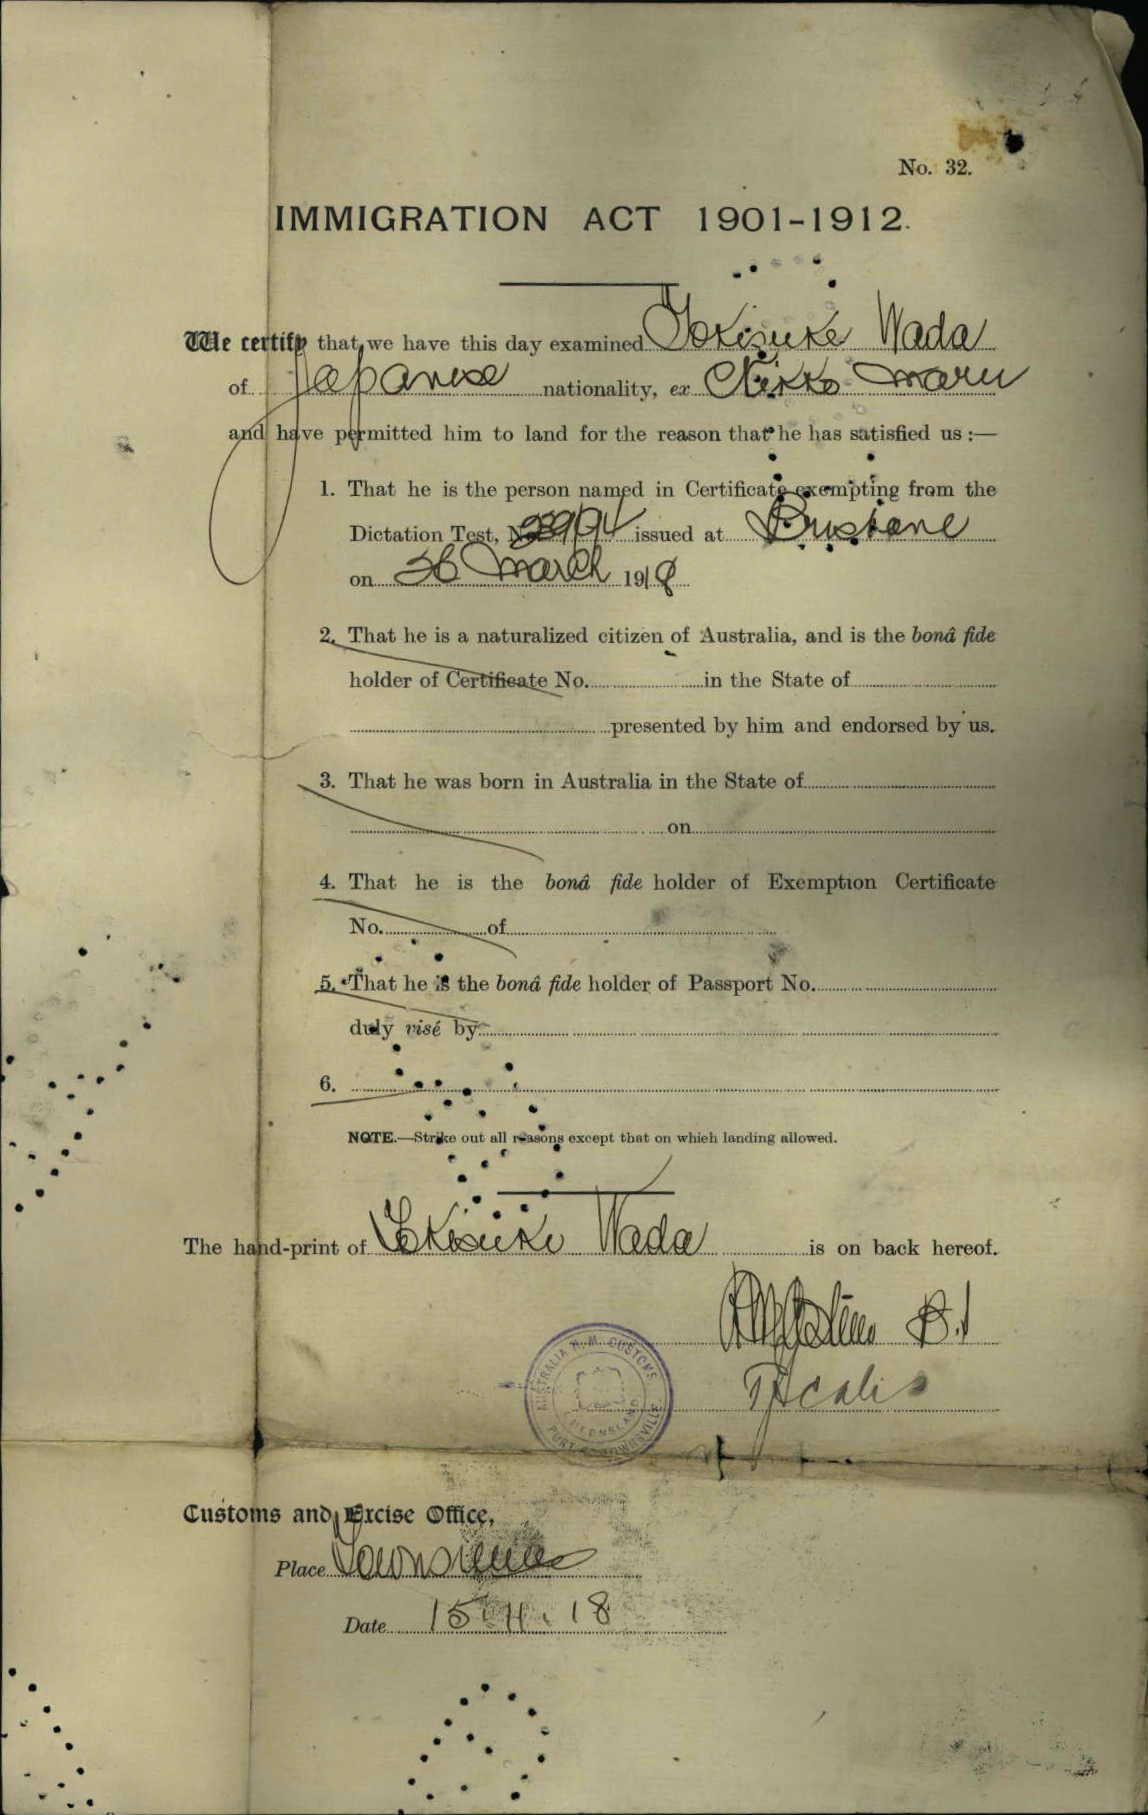 No. 32.
IMMIGRATION ACT 1901-1912.
We certify that we have this day examined Tokisuke Wada
of Japanese nationality, ex Nikko Maru
and have permitted him to land for the reason that he has satisfied us :—
1. That he is the person named in Certificate exempting from the
Dictation Test, No. issued at Brisbane
on March 1918
2. That he is a naturalized citizen of Australia, and is the bonâ fide
holder of Certificate No. in the State of
presented by him and endorsed by us.
3. That he was born in Australia in the State of
on
4. That he is the bonâ fide holder of Exemption Certificate
No. of
5. That he is the bonâ fide holder of Passport No.
duly visé by
6.
NOTE.—Strike out all reasons except that on which landing allowed.
The hand-print of Tokisuke Wada is on back hereof.
AUSTRALIA H.M. CUSTOMS
QUEENSLAND
PORT OF TOWNSVILLE
Customs and Excise Office,
Place Townsville
Date 15.4.18